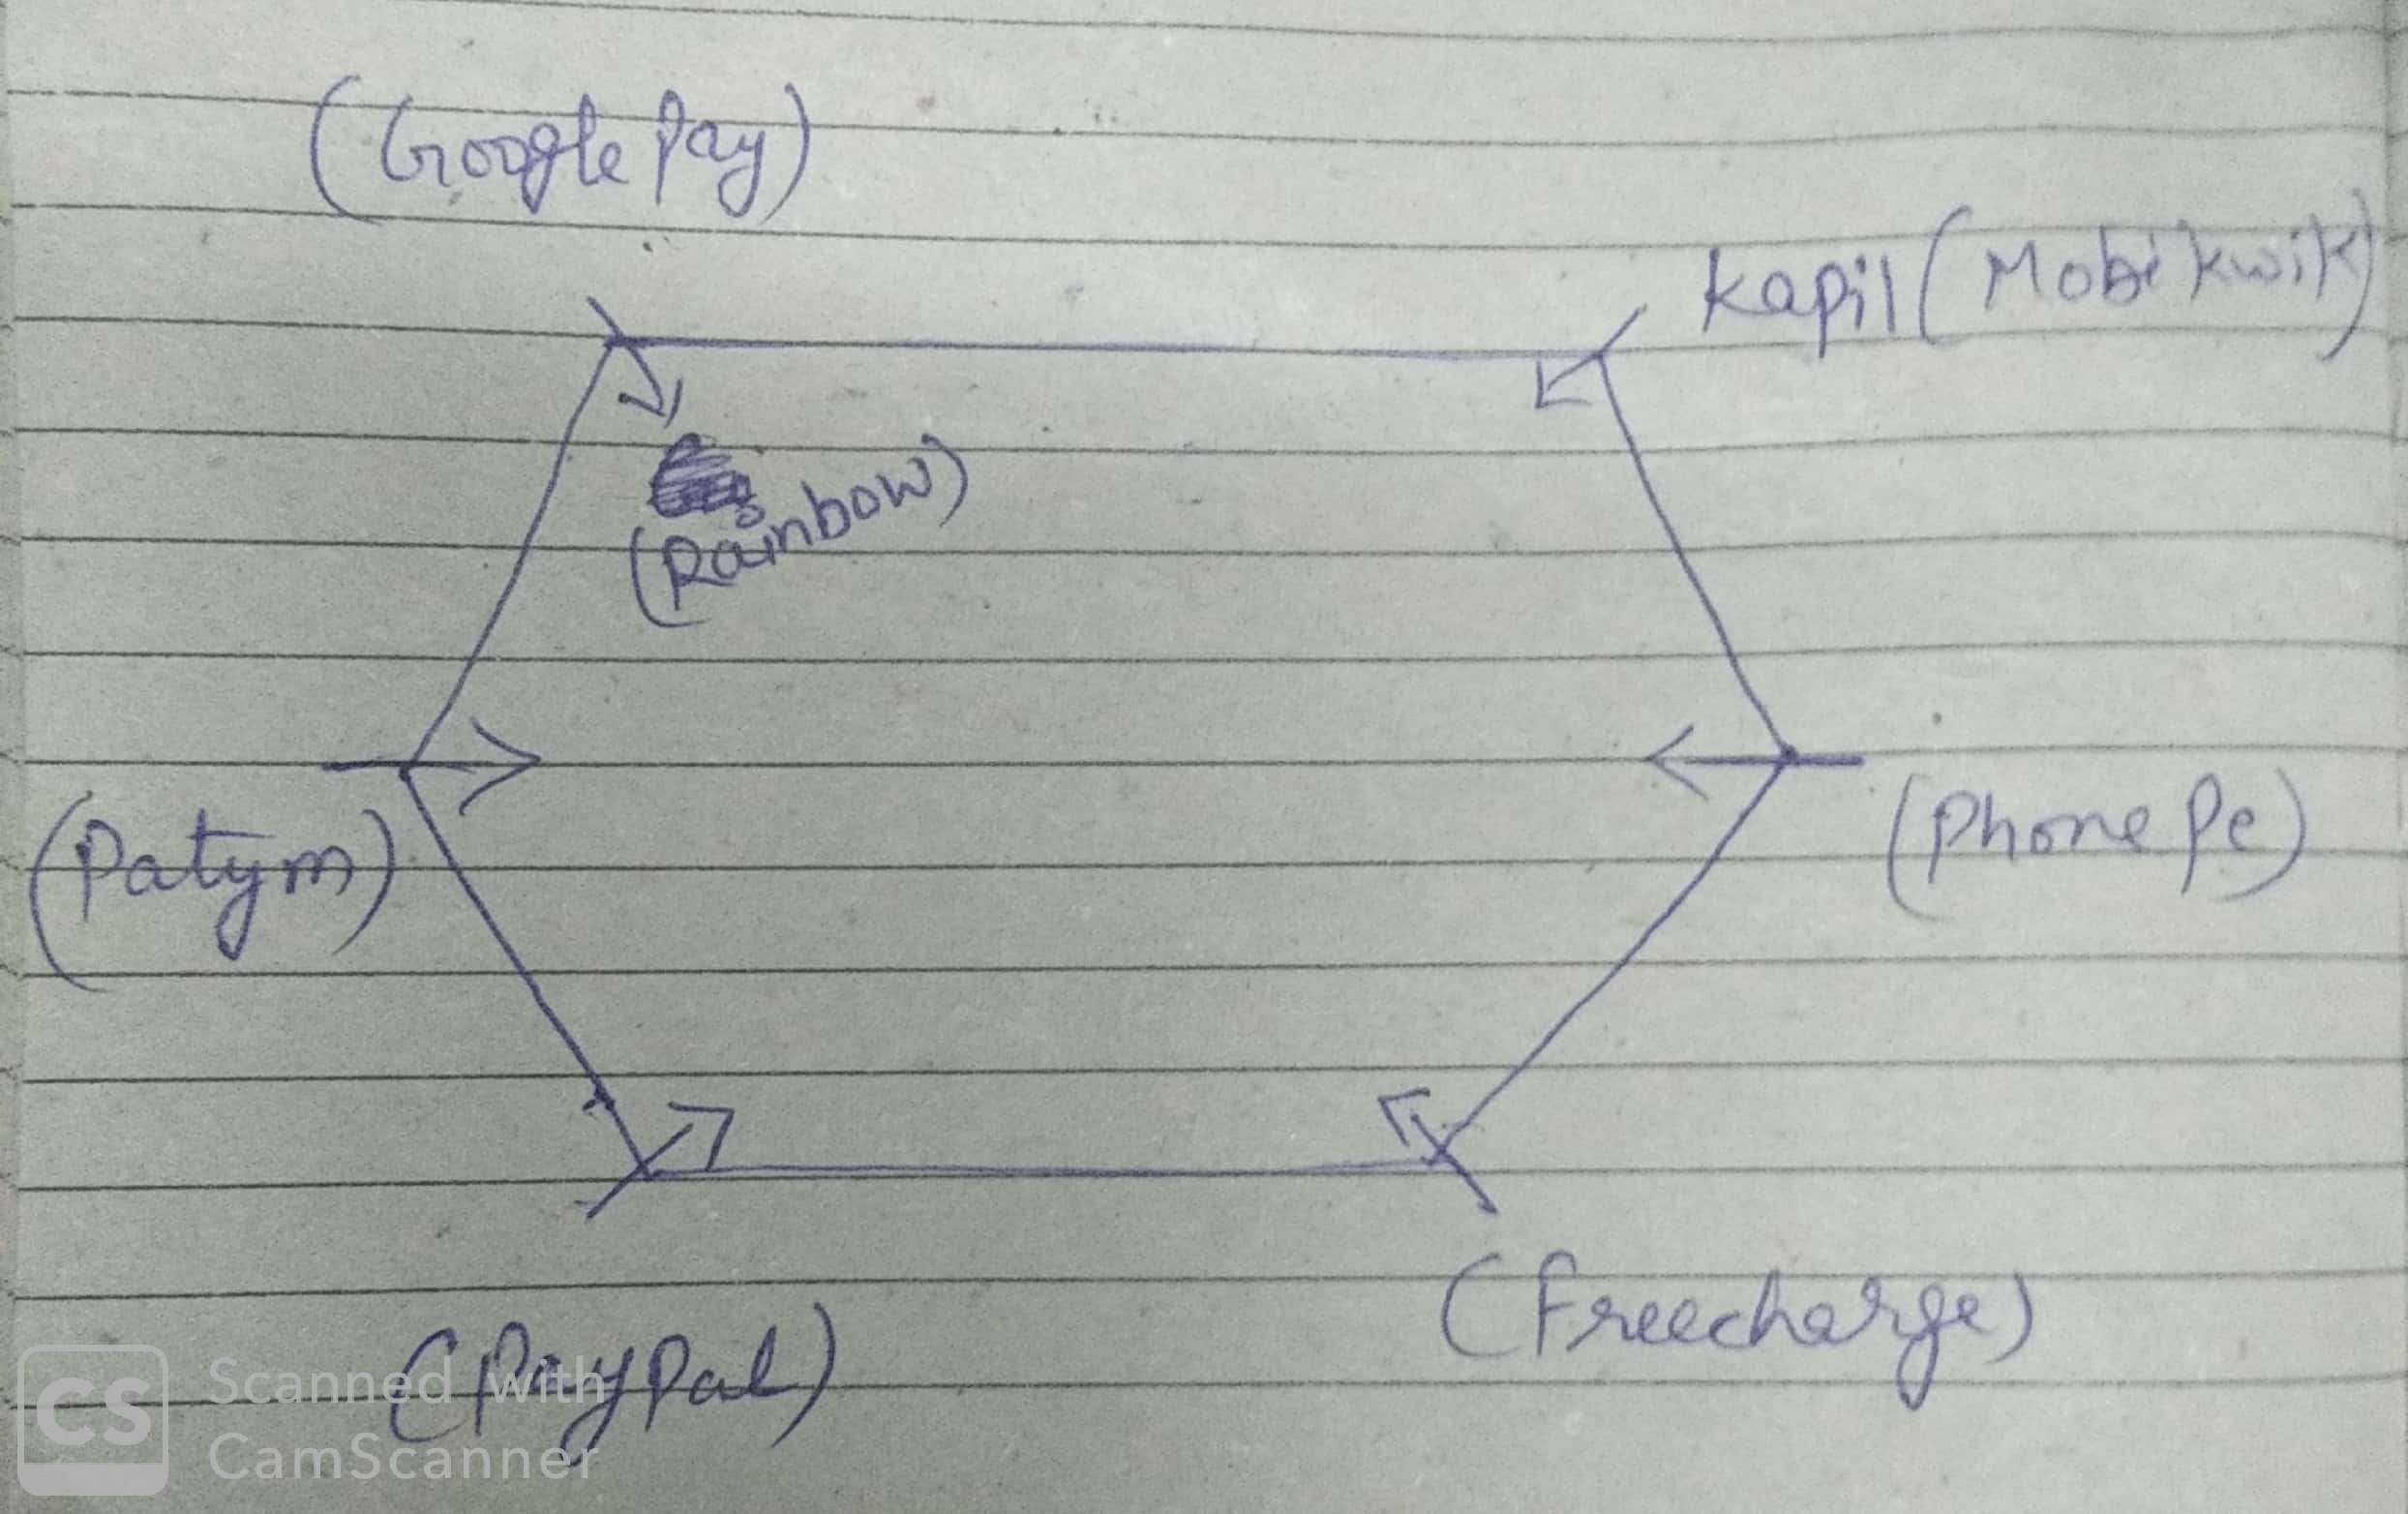 (Google Pay)
Kapil (Mobikwik)
(Rainbow)
(Patym)
(Phone Pe)
(Freecharge)
(PayPal)
CS Scanned with
CamScanner